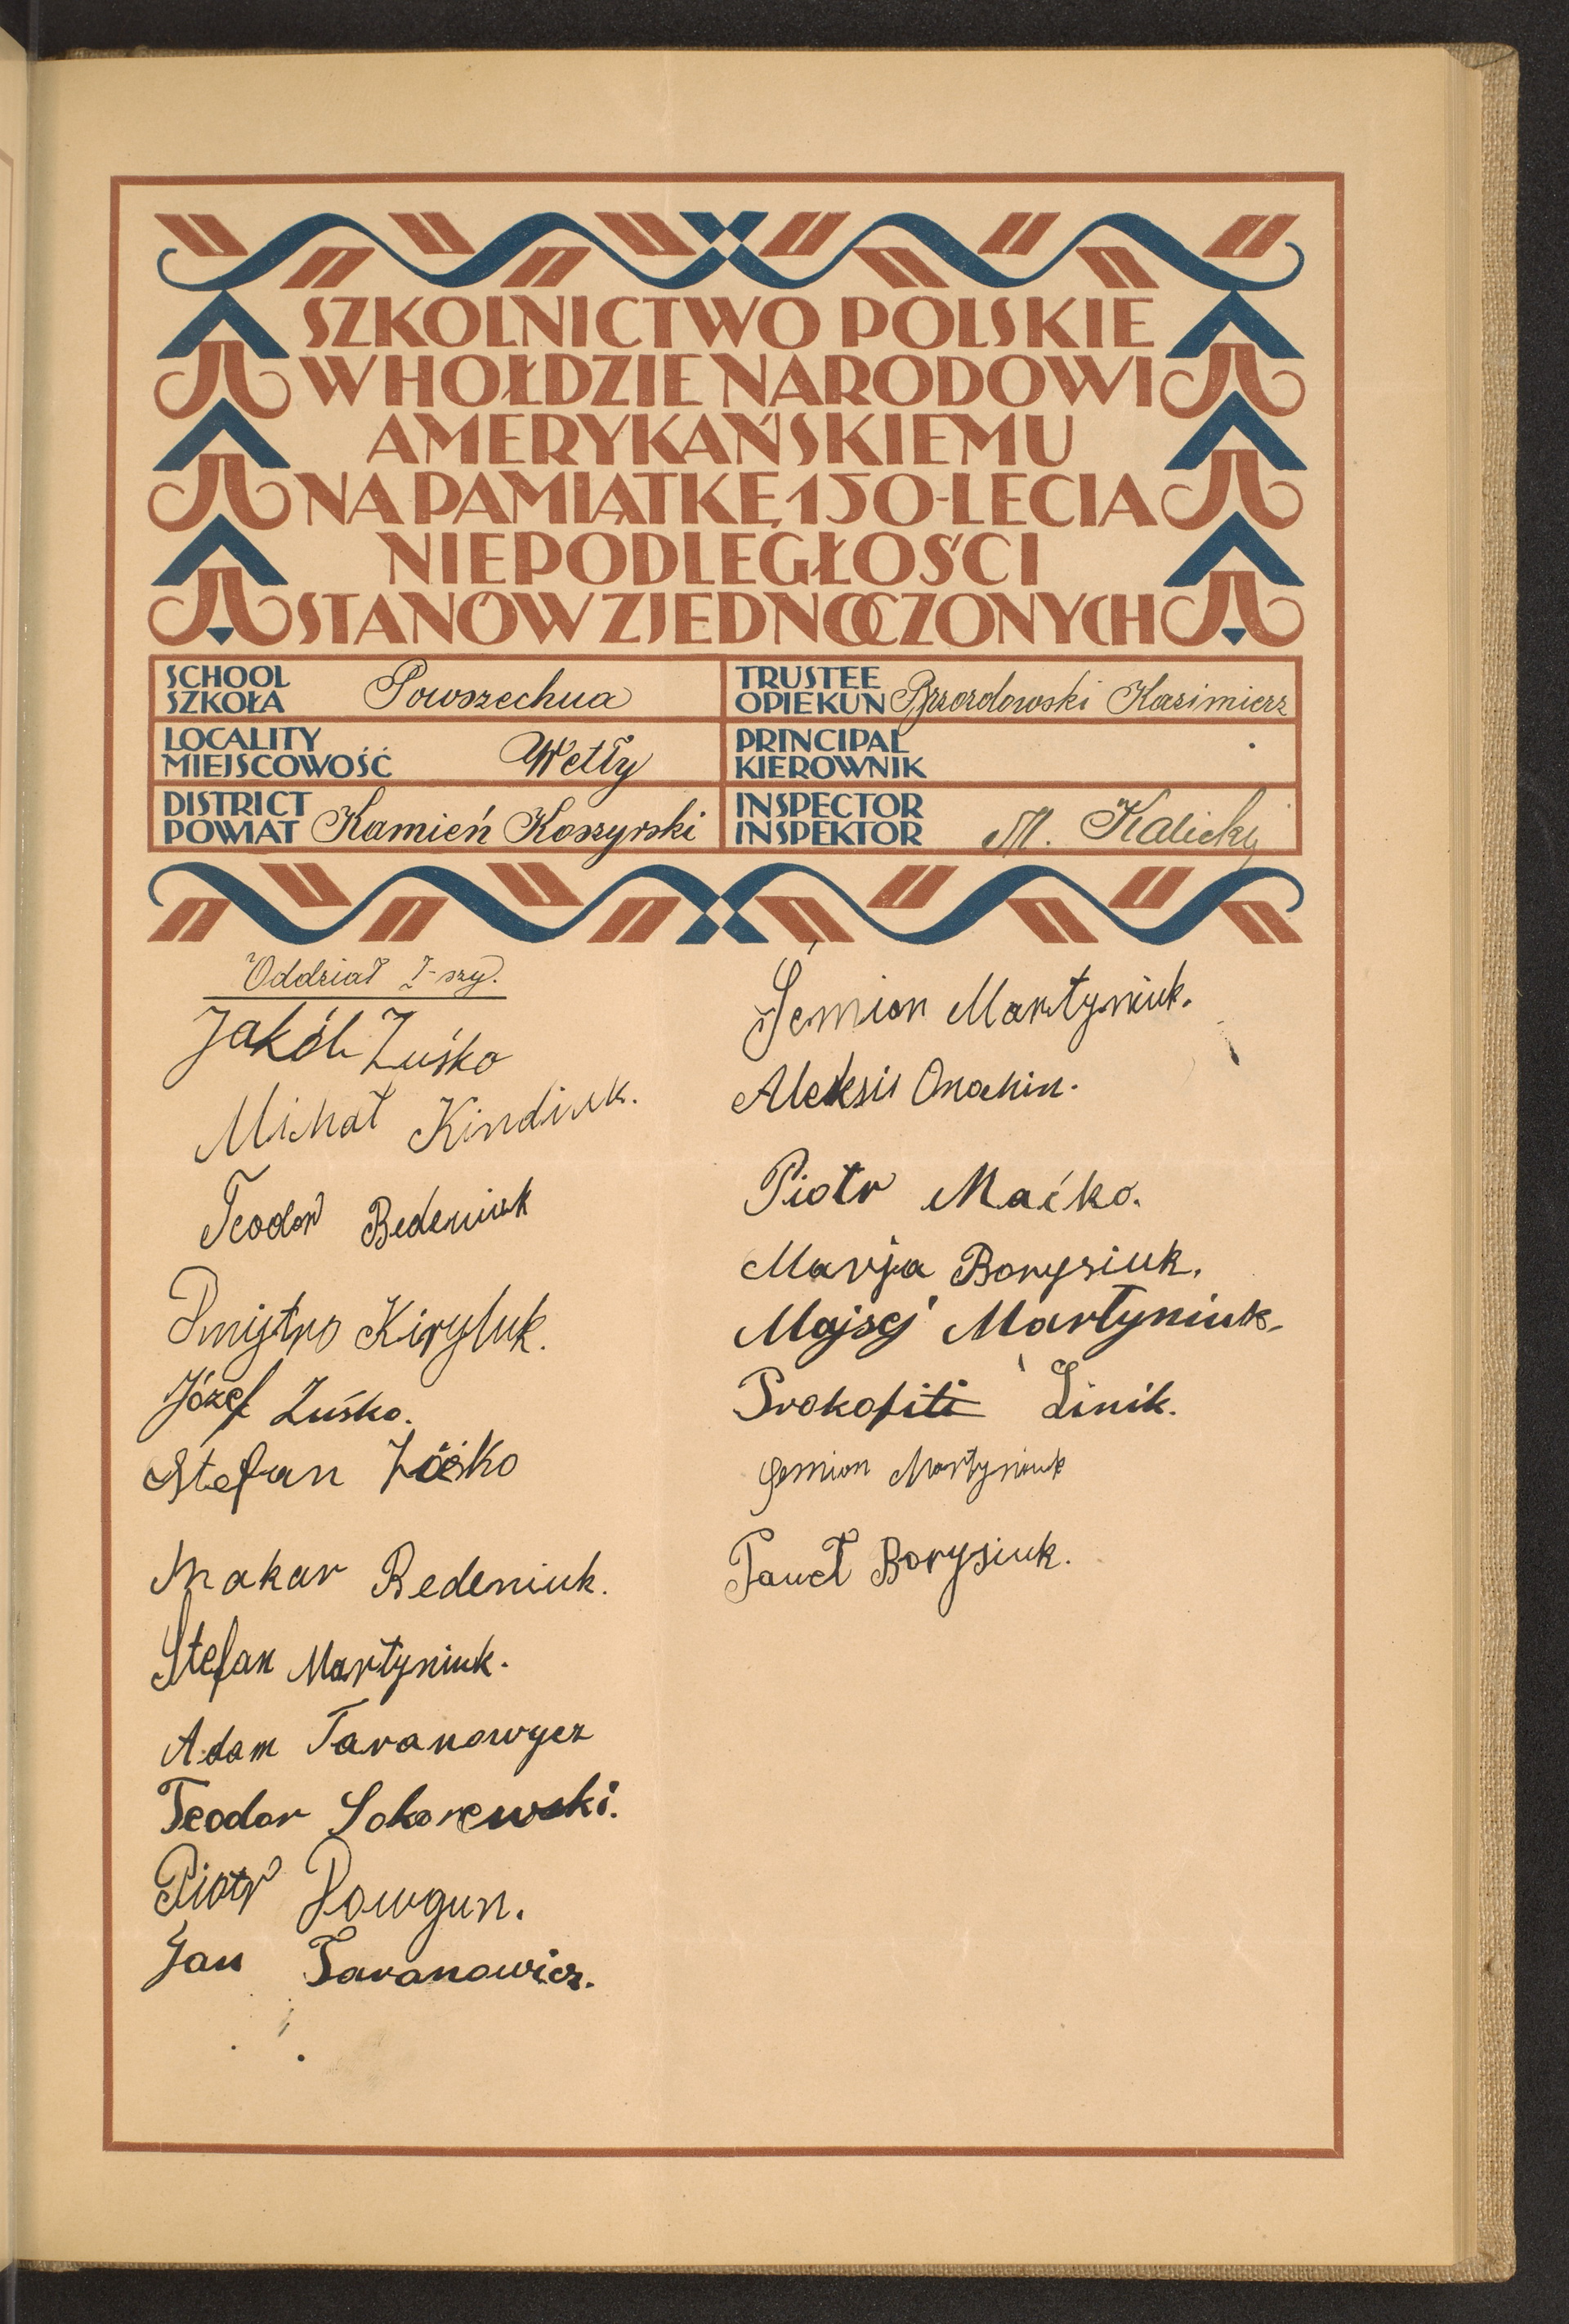 SZKOLNICTWO POLSKIE
W HOŁDZIE NARODOWI
AMERYKAŃSKIEMU
NA PAMIĄTKĘ 150-LECIA
NIEPODLEGŁOŚCI
STANÓW ZJEDNOCZONYCH
SCHOOL
SZKOŁA Powszechna
TRUSTEE
OPIEKUN Brzozdowski Kazimierz
LOCALITY
MIEJSCOWOŚĆ Wetły
PRINCIPAL
KIEROWNIK
DISTRICT
POWIAT Kamień Koszyrski
INSPECTOR
INSPEKTOR M. Kalicki
Oddział I-szy.
Jakób Zuśko
Michał Kindiuk.
Teodor Bedeniuk
Dmijtro Kiryluk.
Józef Zuśko.
Stefan Zuśko
Makar Bedeniuk.
Stefan Martyniuk.
Adam Taranowycz
Teodor Sokorewski.
Piotr Dowgun.
Jan Taranowicz.
Semion Martyniuk.
Aleksij Onachin.
Piotr Maćko.
Marja Borysiuk.
Mojsej Martyniuk.
Prokofiti Linik.
Semion Martyniuk
Paweł Borysiuk.